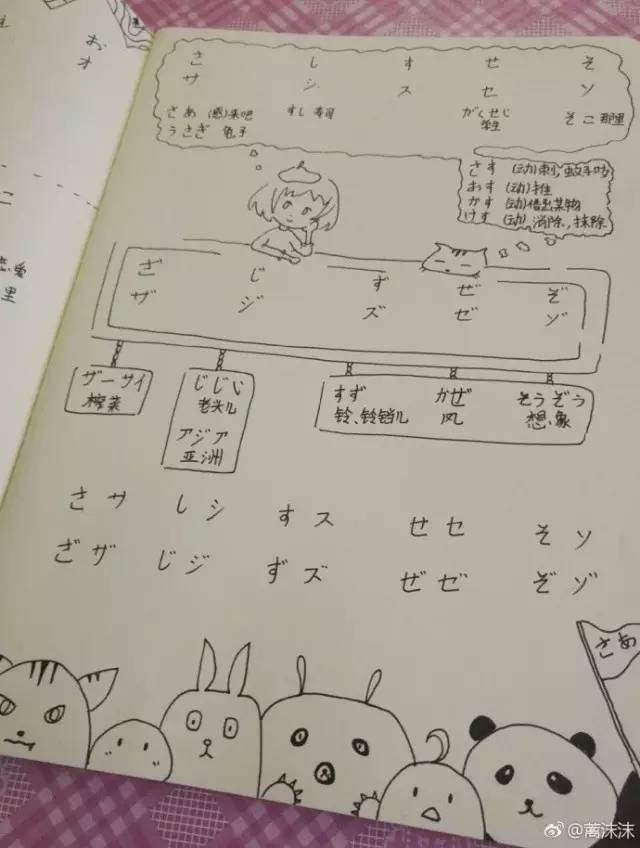 お
オ
こ
恋爱
里
さ し す せ そ
サ シ ス セ ソ
さあ (感)来吧
うさぎ 兔子
すし 寿司
がくせじ
学生
そこ 那里
さす (动)刺,蚊子叮
おす (动)推
かす (动)借出某物
けす (动)消除,抹除
ざ じ ず ぜ ぞ
ザ ジ ズ ゼ ゾ
ザーサイ
榨菜
じじい
老头儿
アジア
亚洲
すず
铃、铃铛儿
かぜ
风
そうぞう
想象
さ サ し シ す ス せ セ そ ソ
ざ ザ じ ジ ず ズ ぜ ゼ ぞ ゾ
さあ
@蓠沫沫